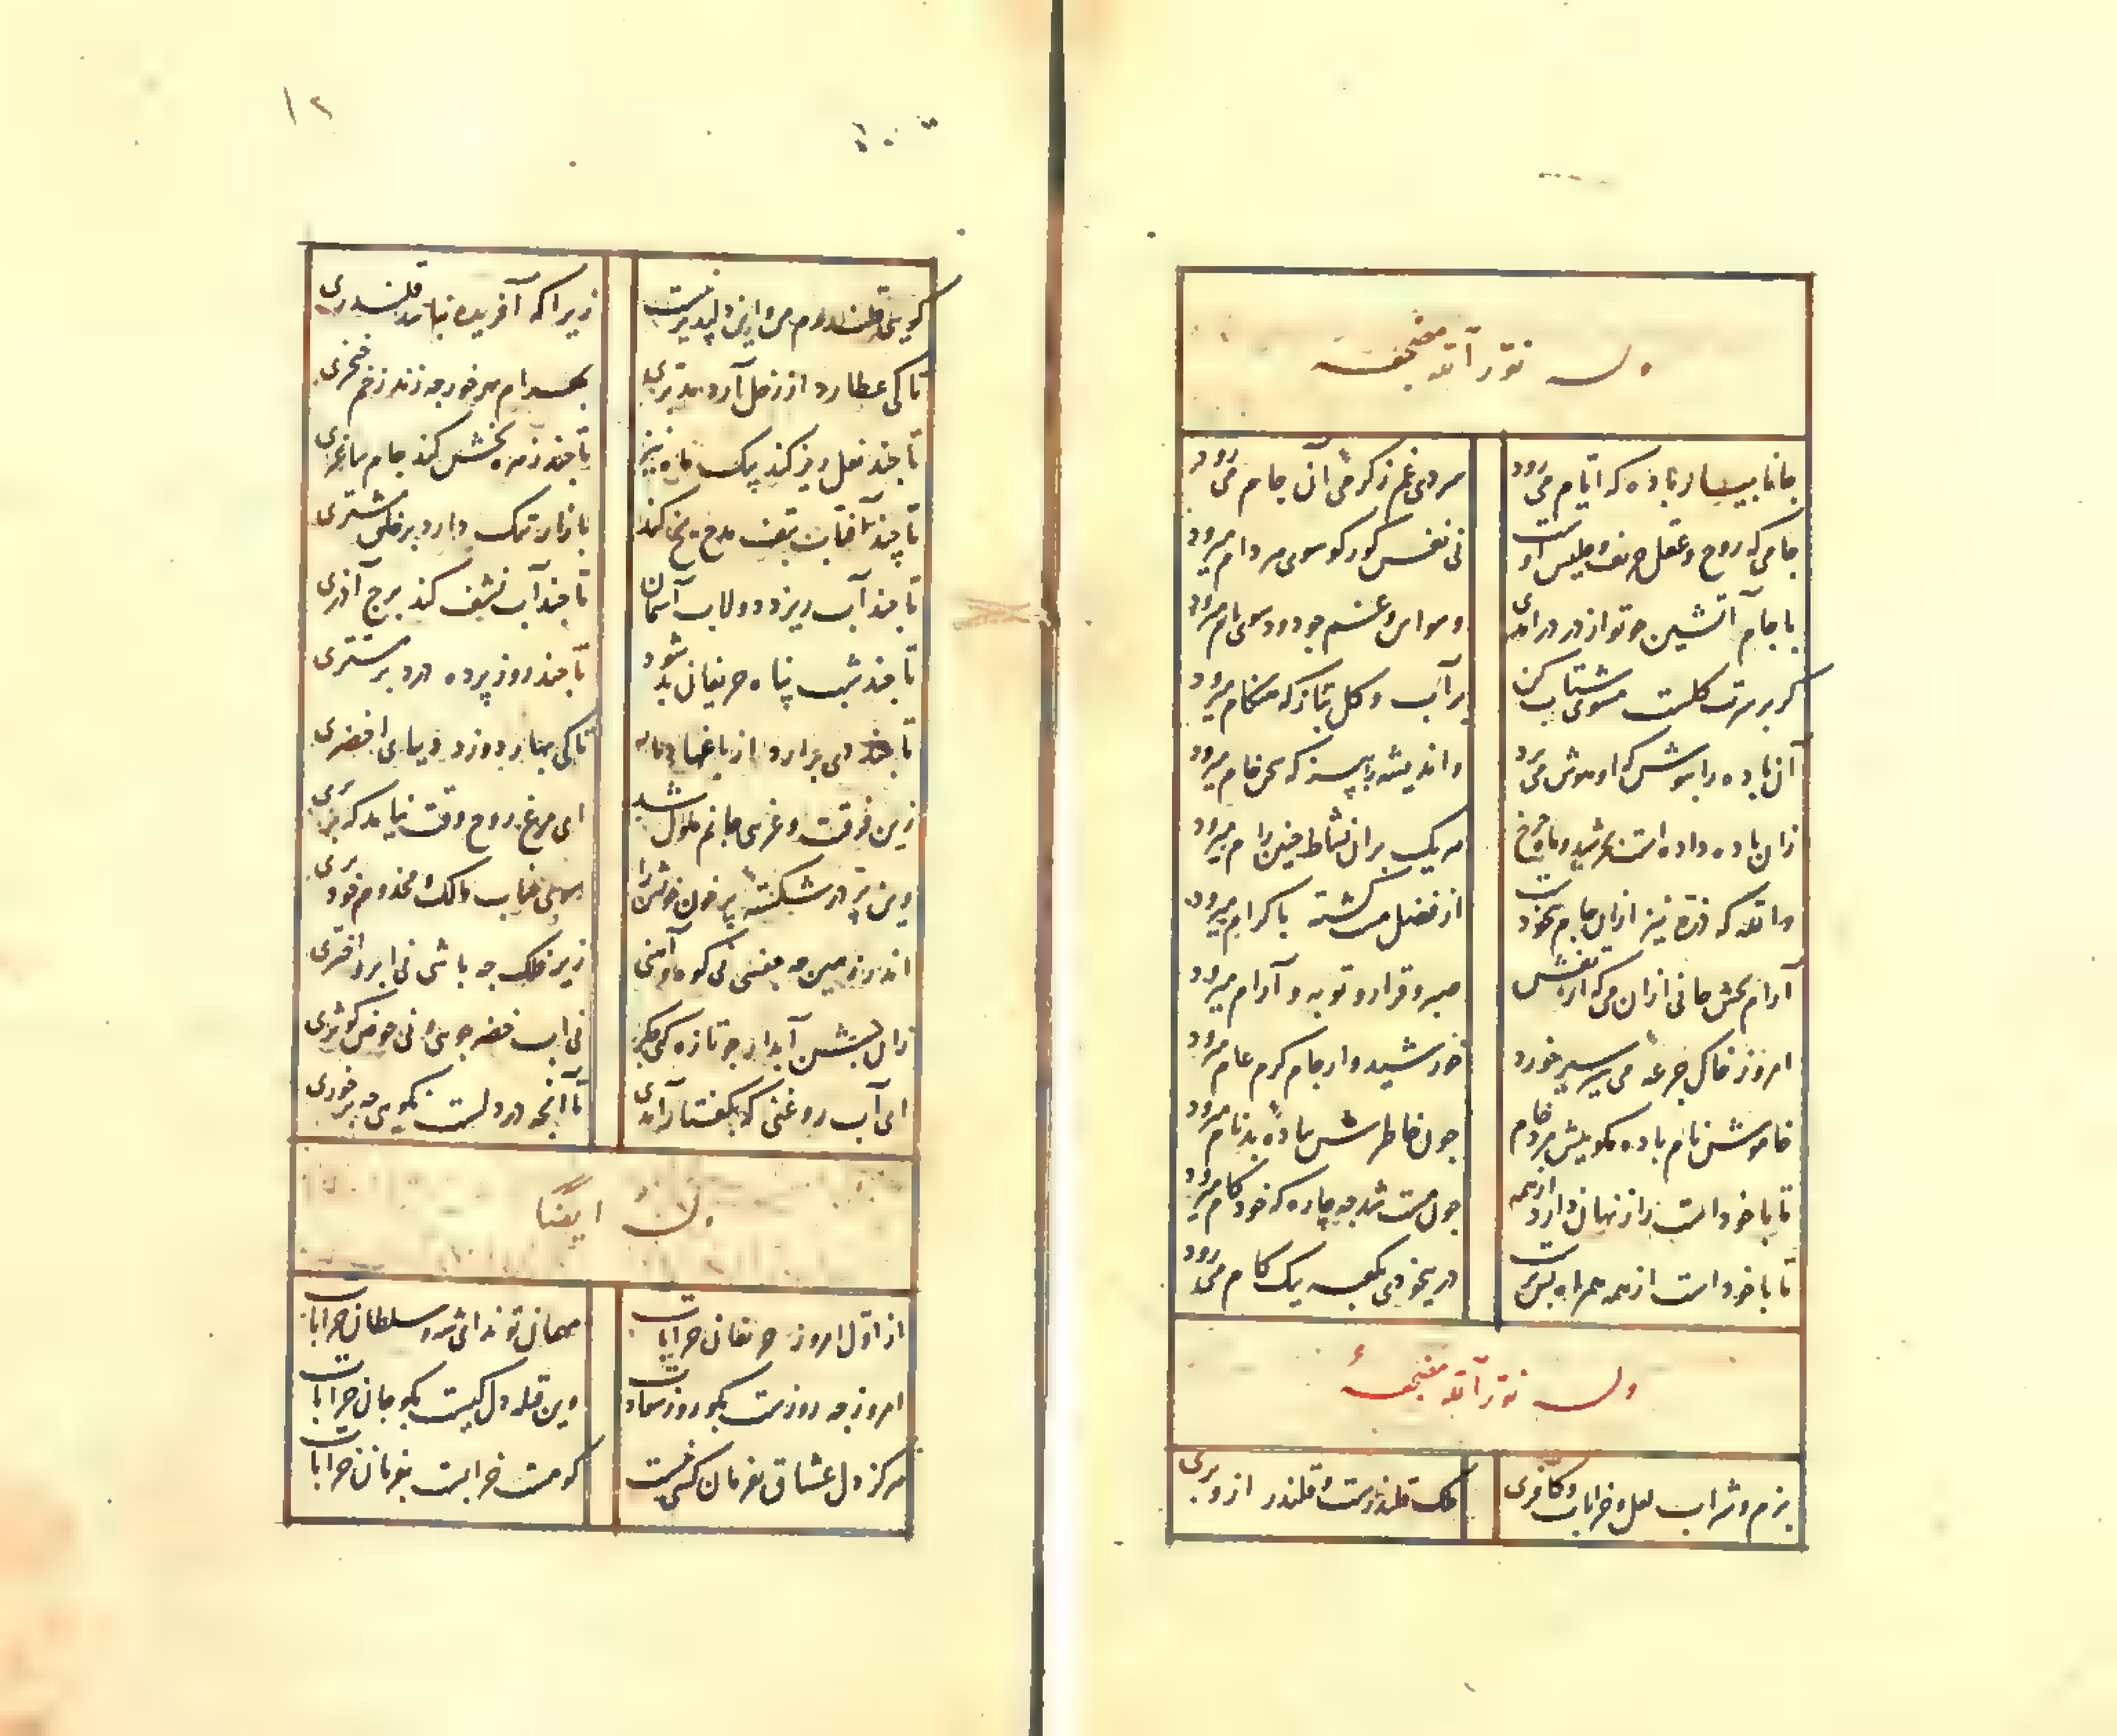 وله نوّر الله مضجعه
جانا بیار باده که ایام می رود
مر دی غم ز کرمی آن جام می رود
جامی که روح و عقل حریف و جلیس اوست
نی نفس کور کو سوی هر دام میرود
با جام آتشین چو تو از در درآمدی
وسواس و غم چو دود سوی بام میرود
کر بر سرت کلست مشوی شتاب کن
بر آب و کل بتاز که هنکام میرود
آن باده را بنوش که او هوش می برد
و اندیشه را بسوز که خام میرود
زان باده داده است بخرشید و ماه و چرخ
هر یک بران نشاط چنین رام میرود
والله که ذره نیز ازان جام بیخودست
از فضل مست کشته باکرام میرود
آرام بخش جانی ازان می که از تفش
صبر و قرار و توبه و آرام میرود
امروز خاک جرعه می سیر سیر خورد
خورشیدوار جام کرم عام میرود
خاموش نام باده مکو پیش مرد خام
چون خاطرش بباده بدنام میرود
تا با خوداست راز نهان دارد از همه
چون مست شد چه چاره که خودکام میرود
تا با خود است از همه همراه بتر
در بیخودی بکعبه یک کام می رود
وله نوّر الله مضجعه
بزم و شراب لعل و خرابات و کافری
ملک قلندرست و قلندر ازو بری
۱۲
کویی قلندرم من و این دلپذیر نیست
زیرا که آفریده نباشد قلندری
تا کی عطارد از زحل آرد مدبری
بهرام هر خورجه زند زخم خنجری
تا چند نعل ریز کند پیک ماه نیز
تا چند زهره بخش کند جام ساغری
تا چند آفتاب بتف مدح یخ کند
بازار تنک دارد بر خلق مشتری
تا چند آب ریزد دولاب آسمان
تا چند آب نشف کند برج آذری
تا چند شب پناه حریفان بد شود
تا چند روز پرده درد بر مستری
تا چند دی برآرد از باغها دمار
تا کی بهار دوزد دیبای اخضری
زین فرقت و غریبی جانم ملول شد
ای مرغ روح وقت نیامد که بر پری
وین پر درشکسته پرخون خویش را
سوی جناب مالک و مخدوم خود بری
اندر زمین چه چفسی نی کوه و آهنی
زیر فلک چه باشی نی ابر و اختری
زان آبدار جو تازه کن جکر
نی آب خضر جوی و نی حوض کوثری
ای آب روغنی که بکفتار آمدی
تا آنچه در دلست نکویی چه برخوری
وله ایضا
از اول امروز حریفان خرابات
مهمان تواند ای شه و سلطان خرابات
امروز چه روزست بکو روز سعادات
وین قبله دل کیست بکو جان خرابات
هرکز دل عشاق بفرمان کسی نیست
کو مست خرابست بفرمان خرابات